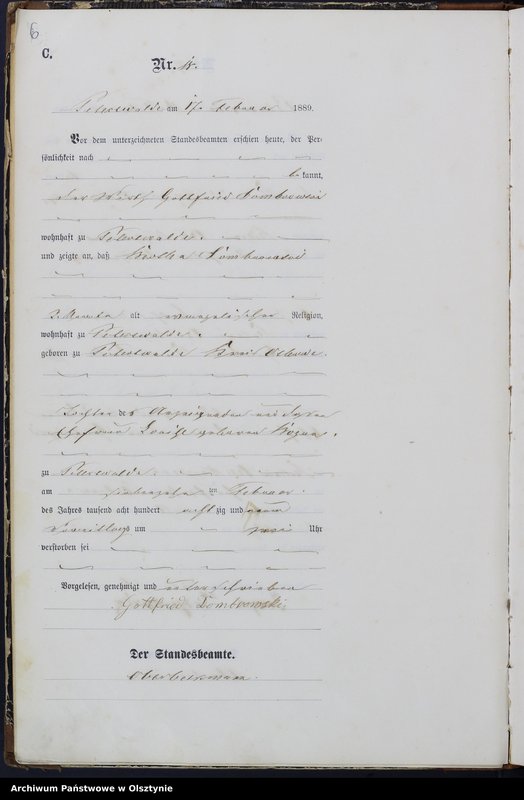 6
C.
Nr. 4.
Peterswalde am 17. Februar 1889.
Vor dem unterzeichneten Standesbeamten erschien heute, der Per-
sönlichkeit nach
be kannt,
der Wirth Gottfried Dombrowski
wohnhaft zu Peterswalde.
und zeigte an, daß Bertha Dombrowski
Monate alt evangelischer Religion,
wohnhaft zu Peterswalde.
geboren zu Peterswalde Kreis Osterode.
Tochter des Anzeigenden und dessen
Ehefrau Louise geborene
zu Peterswalde
am siebenzehn ten Februar
des Jahres tausend acht hundert acht zig und neun
Vormittags um zwei Uhr
verstorben sei
Vorgelesen, genehmigt und unterschrieben
Gottfried Dombrowski
Der Standesbeamte.
Archiwum Państwowe w Olsztynie